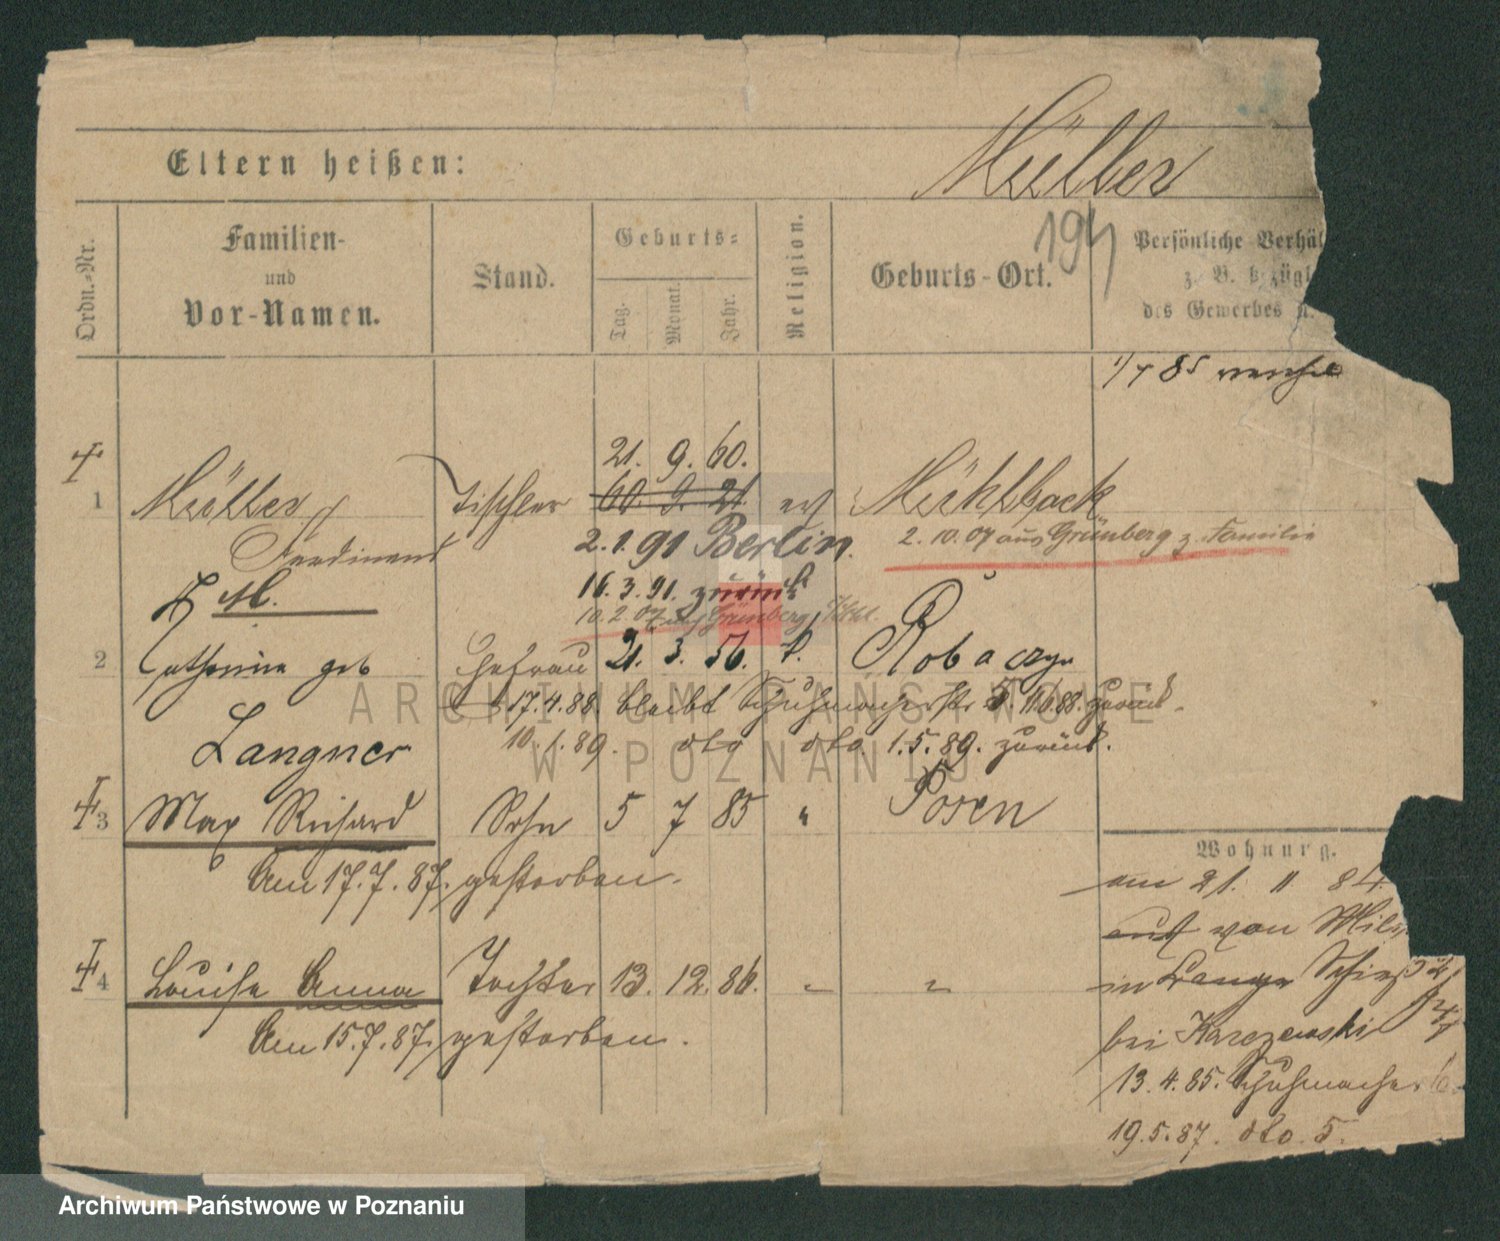 Müller
Eltern heißen:
194
Ordn.-Nr.
Familien-
und
Vor-Namen.
Stand.
Geburts-
Tag.
Monat.
Jahr.
Religion.
Geburts-Ort.
Persönliche Verhäl
z. B. bezügl
des Gewerbes u.
1/7 85
21. 9. 60.
1 Müller Tischler 60. 9. 21. ev Mühlback
Ferdinand 2.1.91 Berlin. 2. 10. 07 aus Grünberg z. Familie
16.3.91. zurück
10.2.07 nach Grünberg
2 Catharina geb Ehefrau 21. 3. 56. k. Robaczyn
17.4.88. bleibt Schuhmacherstr 5. 11.6.88. zurück.
Langner 10.1.89. dto dto. 1.5.89. zurück.
3 Max Richard Sohn 5 7 85 " Posen
Am 17.7.87. gestorben.
4 Louise Anna Tochter 13. 12. 86. " "
Am 15.7.87. gestorben.
Wohnung.
am 21. 11 84.
aus von
in Lange
bei Karczewski
13.4.85. Schuhmacher 6.
19.5.87. dto. 5.
ARCHIWUM PAŃSTWOWE
W POZNANIU
Archiwum Państwowe w Poznaniu